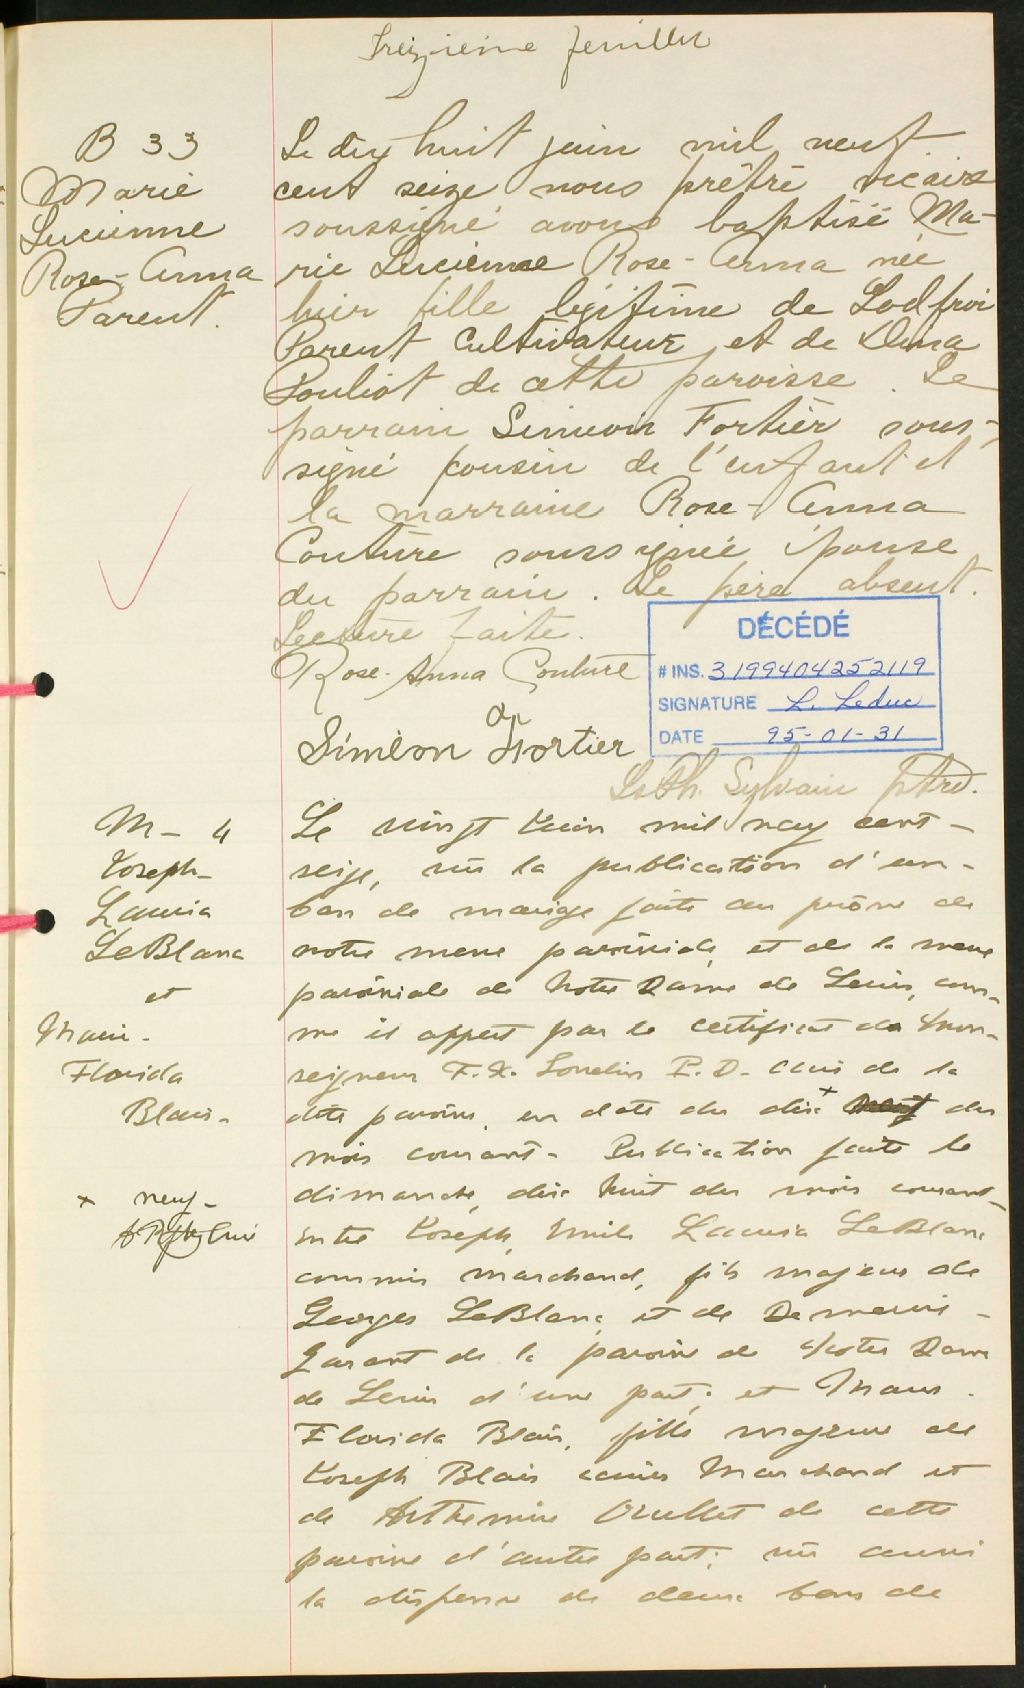 Treizième feuillet
B 33
Marie
Lucienne
Rose-Anna
Parent.
Le dix huit juin mil neuf
cent seize nous prêtre vicaire
soussigné avons baptisé Ma-
rie Lucienne Rose-Anna née
hier fille légitime de Godfroi
Parent cultivateur et de Dina
Pouliot de cette paroisse. Le
parrain Simeon Fortier sous-
signé cousin de l'enfant et
la marraine Rose-Anna
Couture soussignée épouse
du parrain. Le père absent.
Lecture faite.
Rose-Anna Couture
Siméon Fortier
DÉCÉDÉ
# INS. 3199404252119
SIGNATURE L. Leduc
DATE 95-01-31
Ls Ph. Sylvain ptre.
M - 4
Joseph-
Lauria
LeBlanc
et
Marie-
Florida
Blais-
x neuf-
Le vingt Juin mil neuf cent-
seize, vu la publication d'un-
ban de mariage faite au prône de
notre messe paroissiale, et de la messe
paroissiale de Notre Dame de Levis, com-
me il appert par le certificat de Mon-
seigneur F.X. Gosselin P.D. curé de la
dite paroisse, en date du dix x du
mois courant- Publication faite le
dimanche, dix huit du mois courant-
entre Joseph, Emile Lauria LeBlanc
commis marchand, fils majeur de
Georges LeBlanc et de Demerise-
Garant de la paroisse de Notre Dame
de Levis d'une part; et Marie-
Florida Blais, fille majeure de
Joseph Blais commis Marchand et
de Arthemise Ouellet de cette
paroisse d'autre part; vu aussi
la dispense de deux bans de